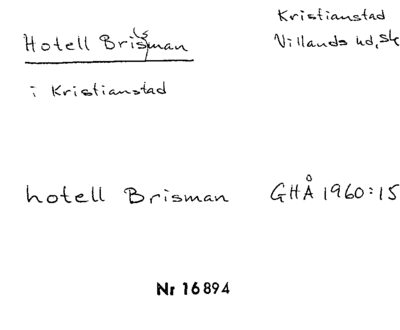 Kristianstad
Hotell Brisman
Villands hd, Sk
i Kristianstad
hotell Brisman GHÅ 1960:15
Nr 16894